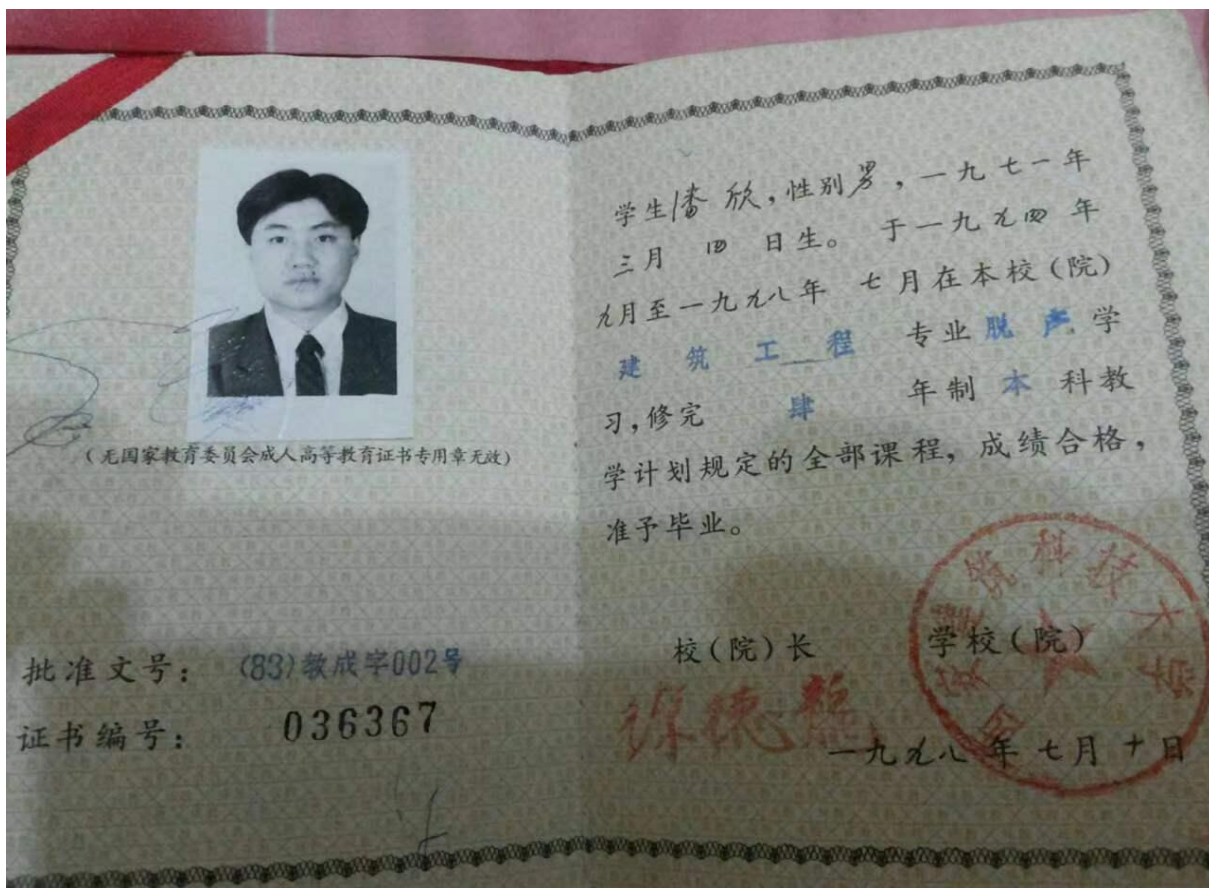 (无国家教育委员会成人高等教育证书专用章无效)
批准文号: (83)教成字002号
证书编号: 036367
学生潘欣,性别男,一九七一年
三月 四 日生。 于一九九四 年
九月至一九九八年 七月在本校(院)
建筑工程 专业脱产学
习,修完 肆 年制 本 科教
学计划规定的全部课程,成绩合格,
准予毕业。
校(院)长 学校(院)
徐德龙
西安建筑科技大学
一九九八 年 七月 十日